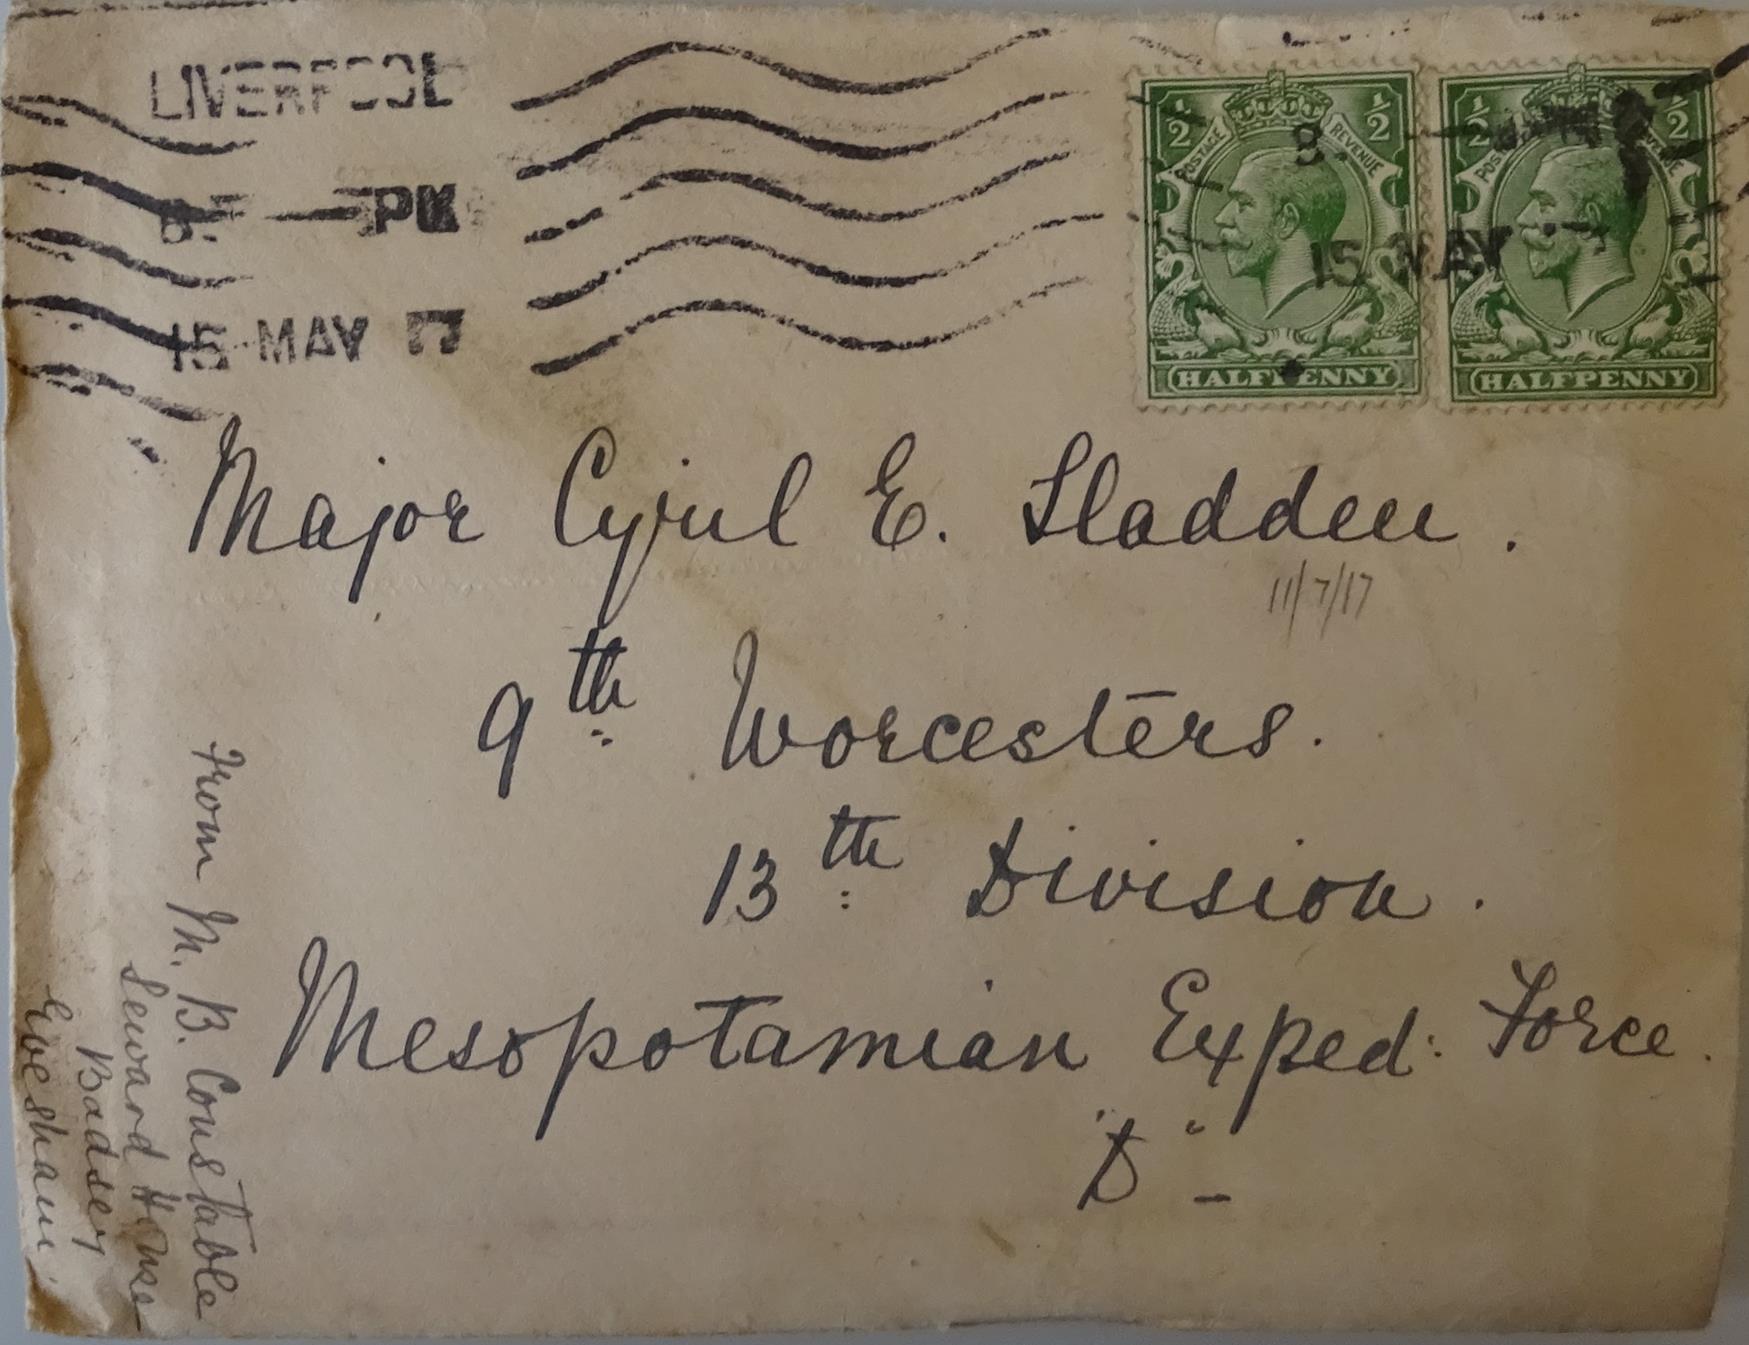 LIVERPOOL
8. — PM
15 MAY 17
½ ½
POSTAGE REVENUE
HALFPENNY
½ ½
POSTAGE REVENUE
HALFPENNY
8.
15 MAY
Major Cyril E. Sladden.
11/7/17
9th Worcesters.
13th Division.
Mesopotamian Exped: Force.
"D"
From M. B. Constable
Seward House
Badsey
Evesham.